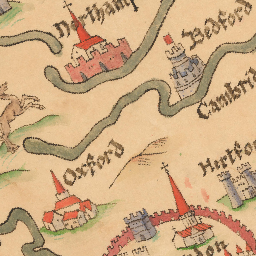 Northamp
Bedford
Cambrid
Oxford
Hertfo
don